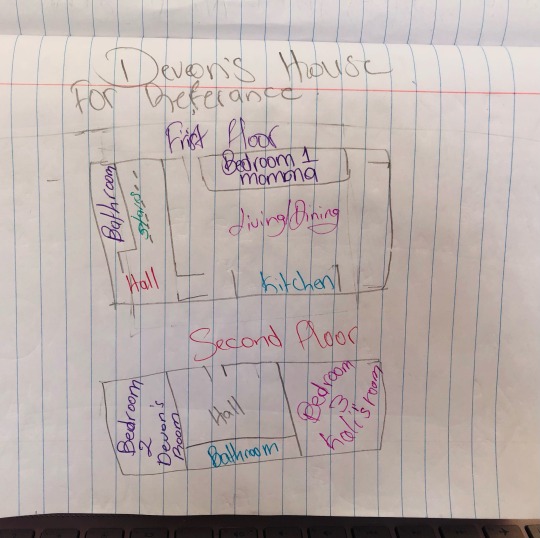 Devon's House
For Referance
First Floor
Bedroom 1
momona
Bathroom
Stairs
Living/Dining
Hall
Kitchen
Second Floor
Bedroom
2
Devon's
Room
Hall
Bathroom
Bedroom
3
Kali's room